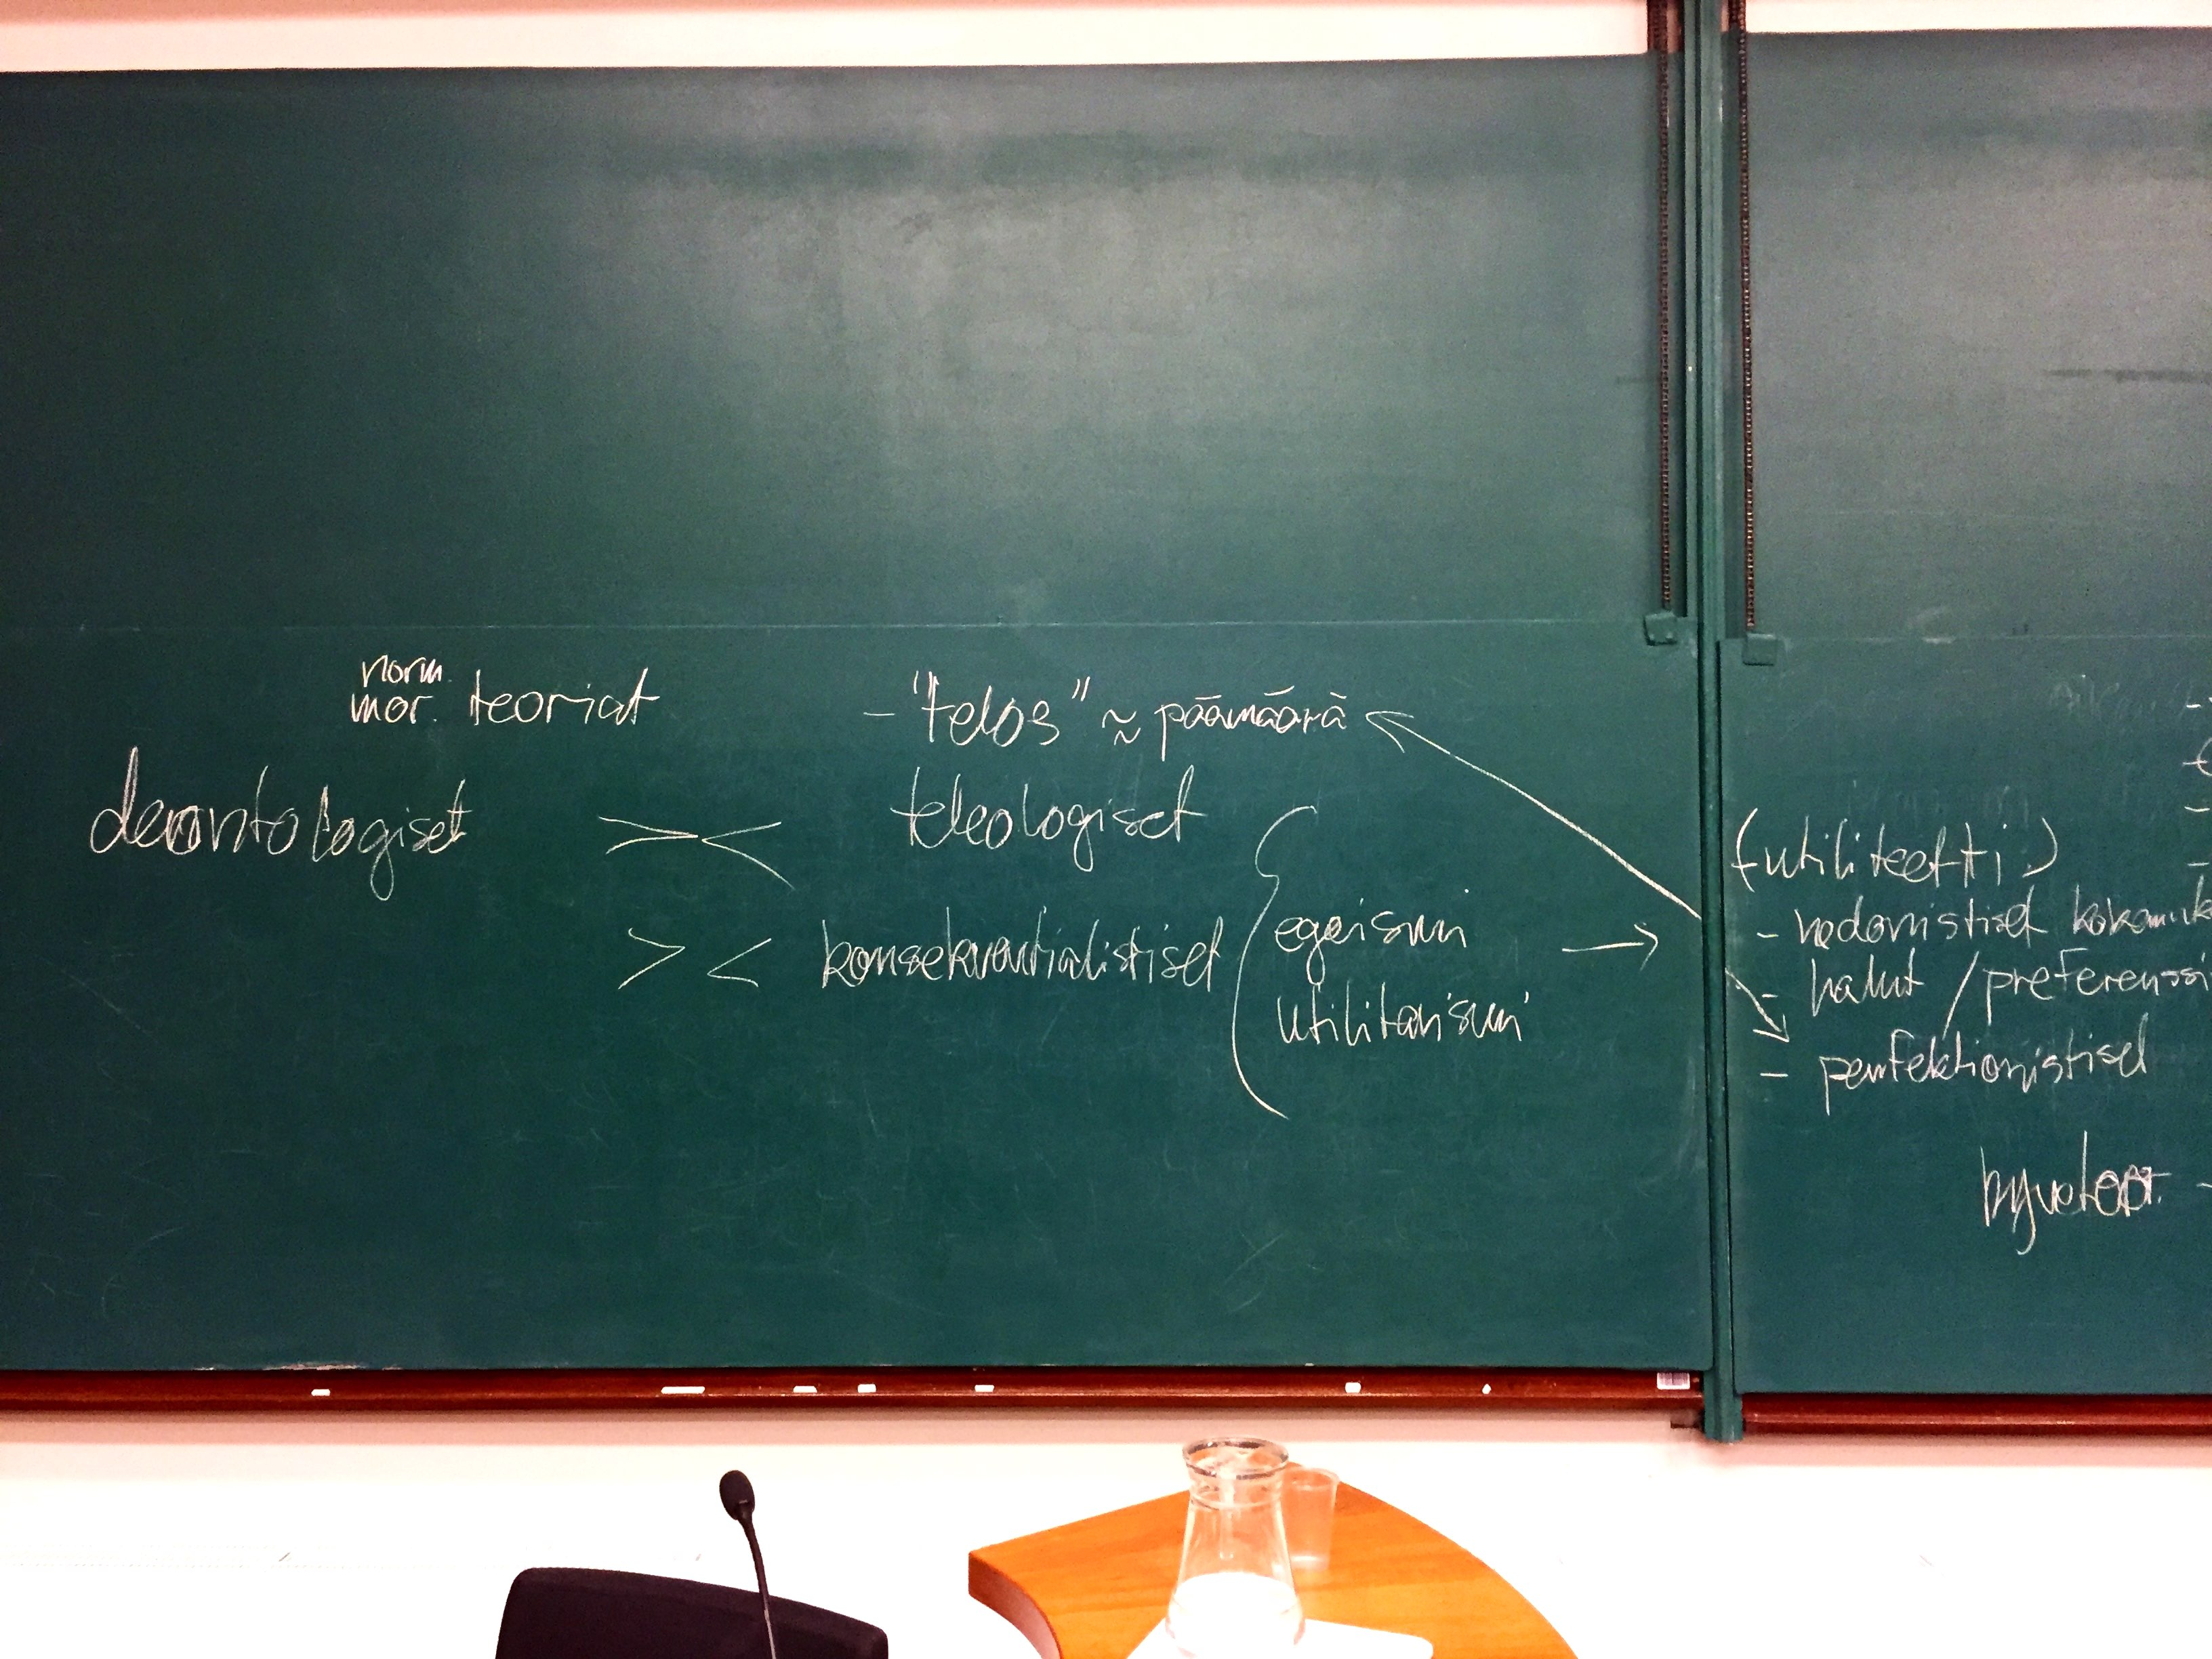 norm.
mor. teoriat
- "telos" ≈ päämäärä
deontologiset >< teleologiset
> < konsekventialistiset
egoismi
utilitarismi
→
(utiliteetti)
- hedonistiset
- halut / preferenssi
- perfektionistiset